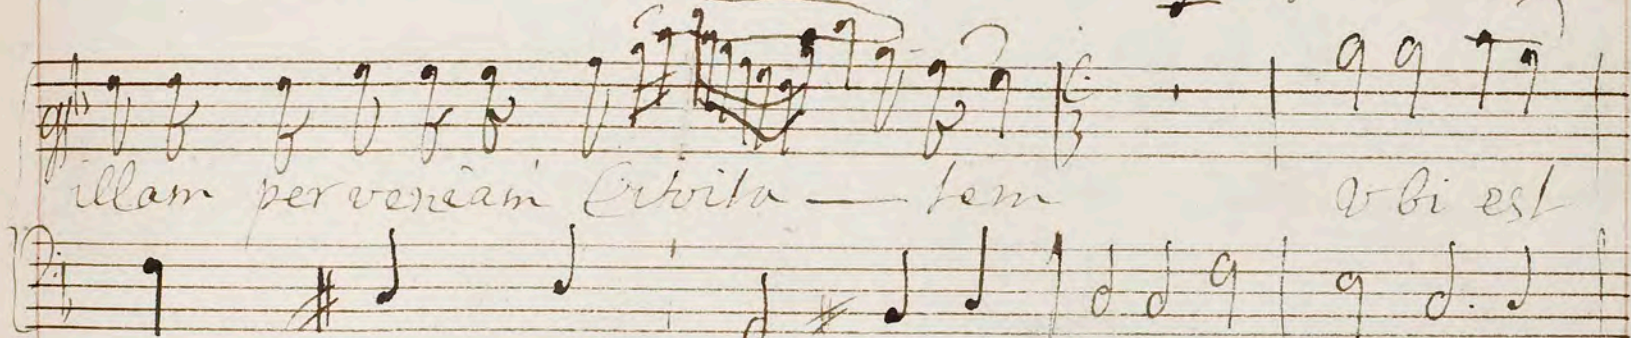 illam per veniam Civita — tem Vbi est